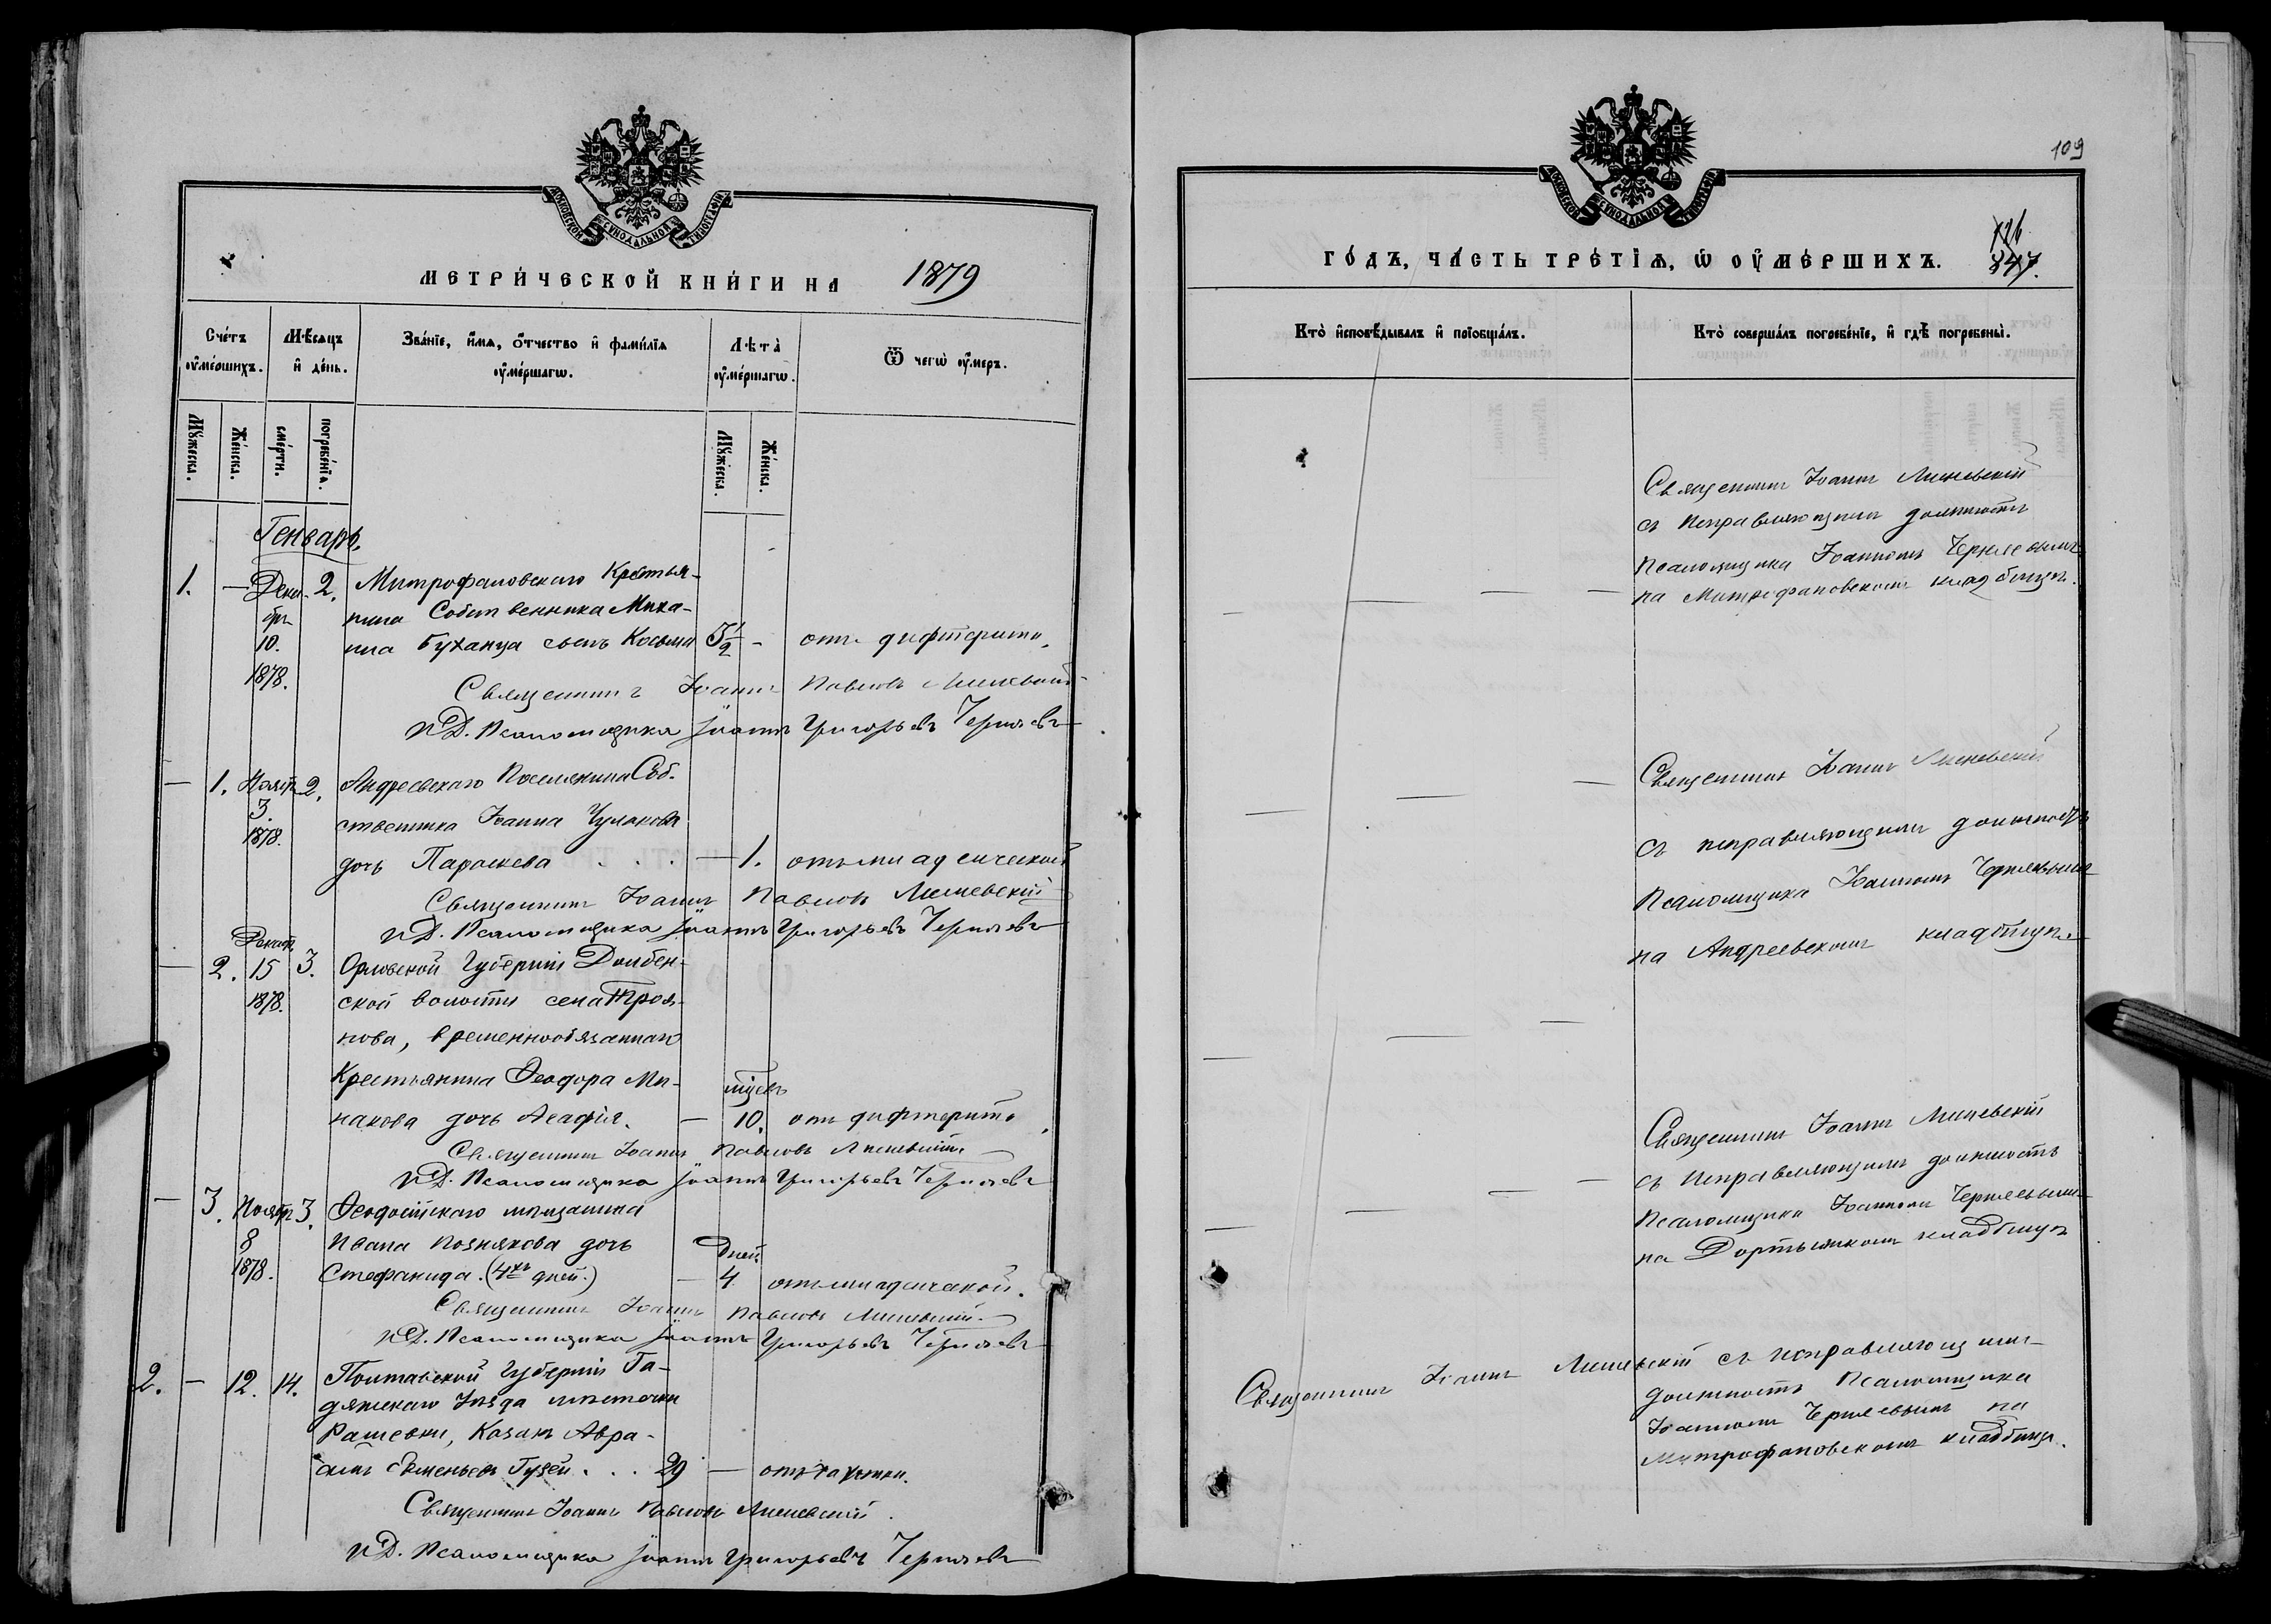 МОСКОВСКОЙ СѴНОДАЛЬНОЙ ТИПОГРАФІИ
МЕТРИ́ЧЕСКОЙ КНИ́ГИ НА 1879
Сче́тъ ᲂу҆ме́ршихъ.
Мѣ́сяцъ и҆ де́нь.
Зва́нїе, и҆́мѧ, ѻ҆́тчество и҆ фами́лїѧ ᲂу҆ме́ршагѡ.
Лѣ́та ᲂу҆ме́ршагѡ.
Ѿ чегѡ̀ ᲂу҆́меръ.
Мꙋ́жеска.
Же́нска.
сме́рти.
погребе́нїѧ.
Мꙋ́жеска.
Же́нска.
Генварь.
1. — Декабр. 10. 1878. 2. Митрофановскаго Крестья-
нина Собственника Миха-
ила Буханца сынъ Косьма 5½ - отъ дифтерита.
Священникъ Іоаннъ Павловъ
И.Д. Псаломщика Іоаннъ Григорьевъ Черняевъ
— 1. Ноябр. 3. 1878. 2. Андреевскаго Поселянина Соб-
ственника Іоанна Чулакова
дочь Параскева . . . — 1. отъ младенческой
Священникъ Іоаннъ Павловъ
И.Д. Псаломщика Іоаннъ Григорьевъ Черняевъ
— 2. Декабр. 15 1878. 3. Орловской Губерніи Долбен-
ской волости села Троя-
нова, временнообязаннаго
Крестьянина Ѳеодора Ми-
накова дочь Агафія. — мѣсяцъ 10. отъ дифтерита.
Священникъ Іоаннъ Павловъ
И.Д. Псаломщика Іоаннъ Григорьевъ Черняевъ
— 3. Ноябр. 8 1878. 3. Ѳеодосійскаго мѣщанина
Ивана Познякова дочь
Стефанида. (4хъ дней.) — Дней 4 отъ младенческой.
Священникъ Іоаннъ Павловъ
И.Д. Псаломщика Іоаннъ Григорьевъ Черняевъ
2. — 12. 14. Полтавской Губерніи Га-
дяцкаго Уѣзда мѣстечка
Рашевки, Козакъ Авра-
амъ Семеньевъ Гузѣй . . . 29 — отъ чахотки.
Священникъ Іоаннъ Павловъ
И.Д. Псаломщика Іоаннъ Григорьевъ Черняевъ
109
МОСКОВСКОЙ СѴНОДАЛЬНОЙ ТИПОГРАФІИ
ГО́ДЪ, ЧА́СТЬ ТРЕ́ТІѦ, Ѡ҆ ОУ҆МЕ́РШИХЪ.
Кто̀ и҆сповѣ́дывалъ и҆ прїобща́лъ.
Кто̀ соверша́лъ погребе́нїе, и҆ гдѣ̀ погребены̀.
Священникъ Іоаннъ
съ исправляющимъ должность
Псаломщика Іоанномъ Черняевымъ
на Митрофановскомъ кладбищѣ.
Священникъ Іоаннъ
съ исправляющимъ должность
Псаломщика Іоанномъ Черняевымъ
на Андреевскомъ кладбищѣ.
Священникъ Іоаннъ
съ исправляющимъ должность
Псаломщика Іоанномъ Черняевымъ
на кладбищѣ
Священникъ Іоаннъ съ исправляющимъ
должность Псаломщика
Іоанномъ Черняевымъ на
Митрофановскомъ кладбищѣ.